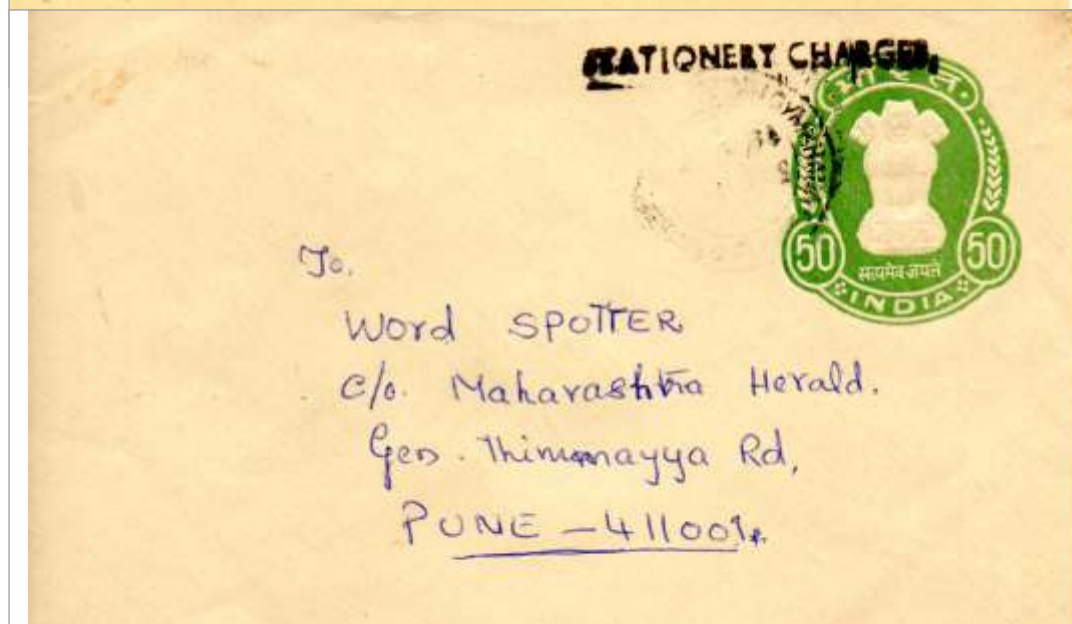 STATIONERY CHARGES,
भारत
50 50
सत्यमेव जयते
INDIA
To.
Word SPOTTER
c/o. Maharashtra Herald.
Gen. Thimmayya Rd,
PUNE - 411001.